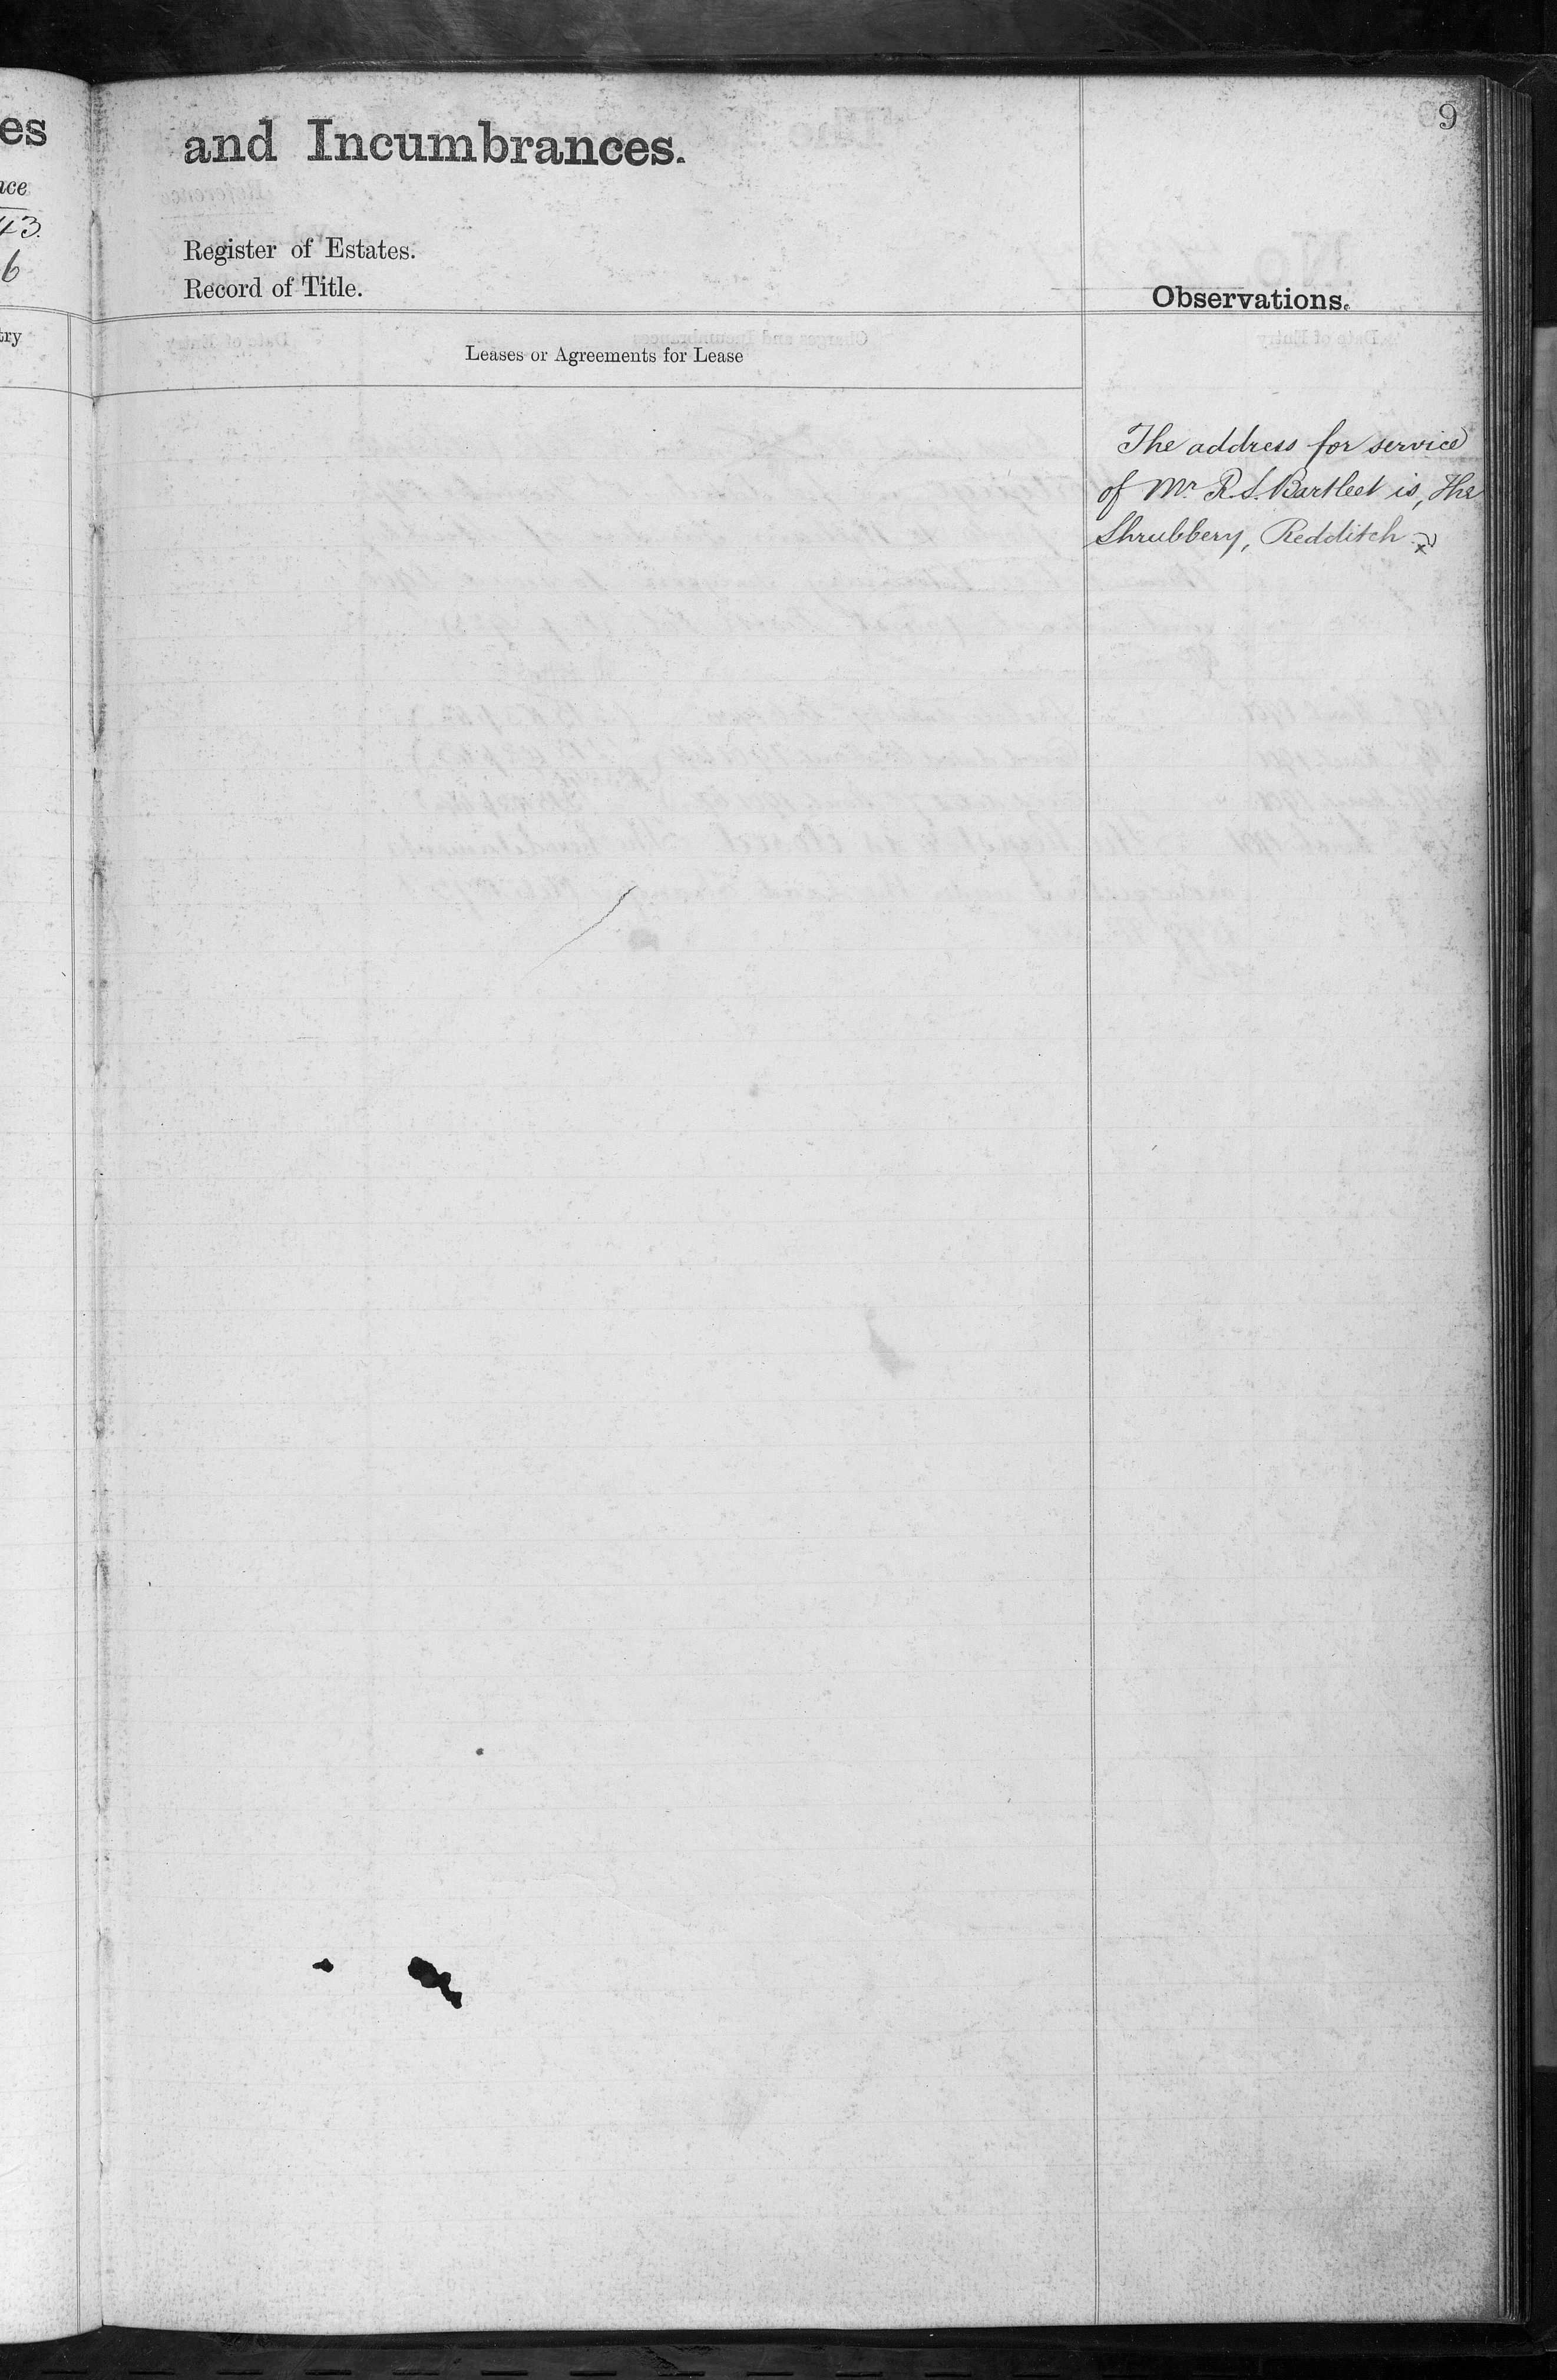 es
nce
43.
6
try
9
and Incumbrances.
Register of Estates.
Record of Title.
Observations.
Leases or Agreements for Lease
The address for service
of Mr. R. S. Bartleet is, The
Shrubbery, Redditch